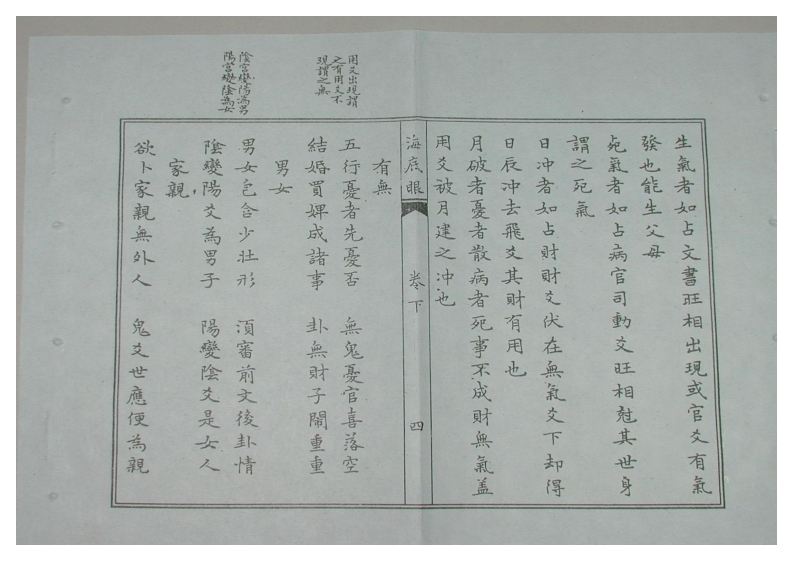 生氣者如占文書旺相出現或官爻有氣
發也能生父母
死氣者如占病官司動爻旺相尅其世身
謂之死氣
日冲者如占財財爻伏在無氣爻下却得
日辰冲去飛爻其財有用也
月破者憂者散病者死事不成財無氣盖
用爻被月建之冲也
海底眼
卷下
四
用爻出現謂
之有用爻不
現謂之無
有無
五行憂者先憂否 無鬼憂官喜落空
結婚買婢成諸事 卦無財子鬧重重
陰宮變陽為男
陽宮變陰為女
男女
男女包含少壯形 須審前文後卦情
陰變陽爻為男子 陽變陰爻是女人
家親
欲卜家親無外人 鬼爻世應便為親